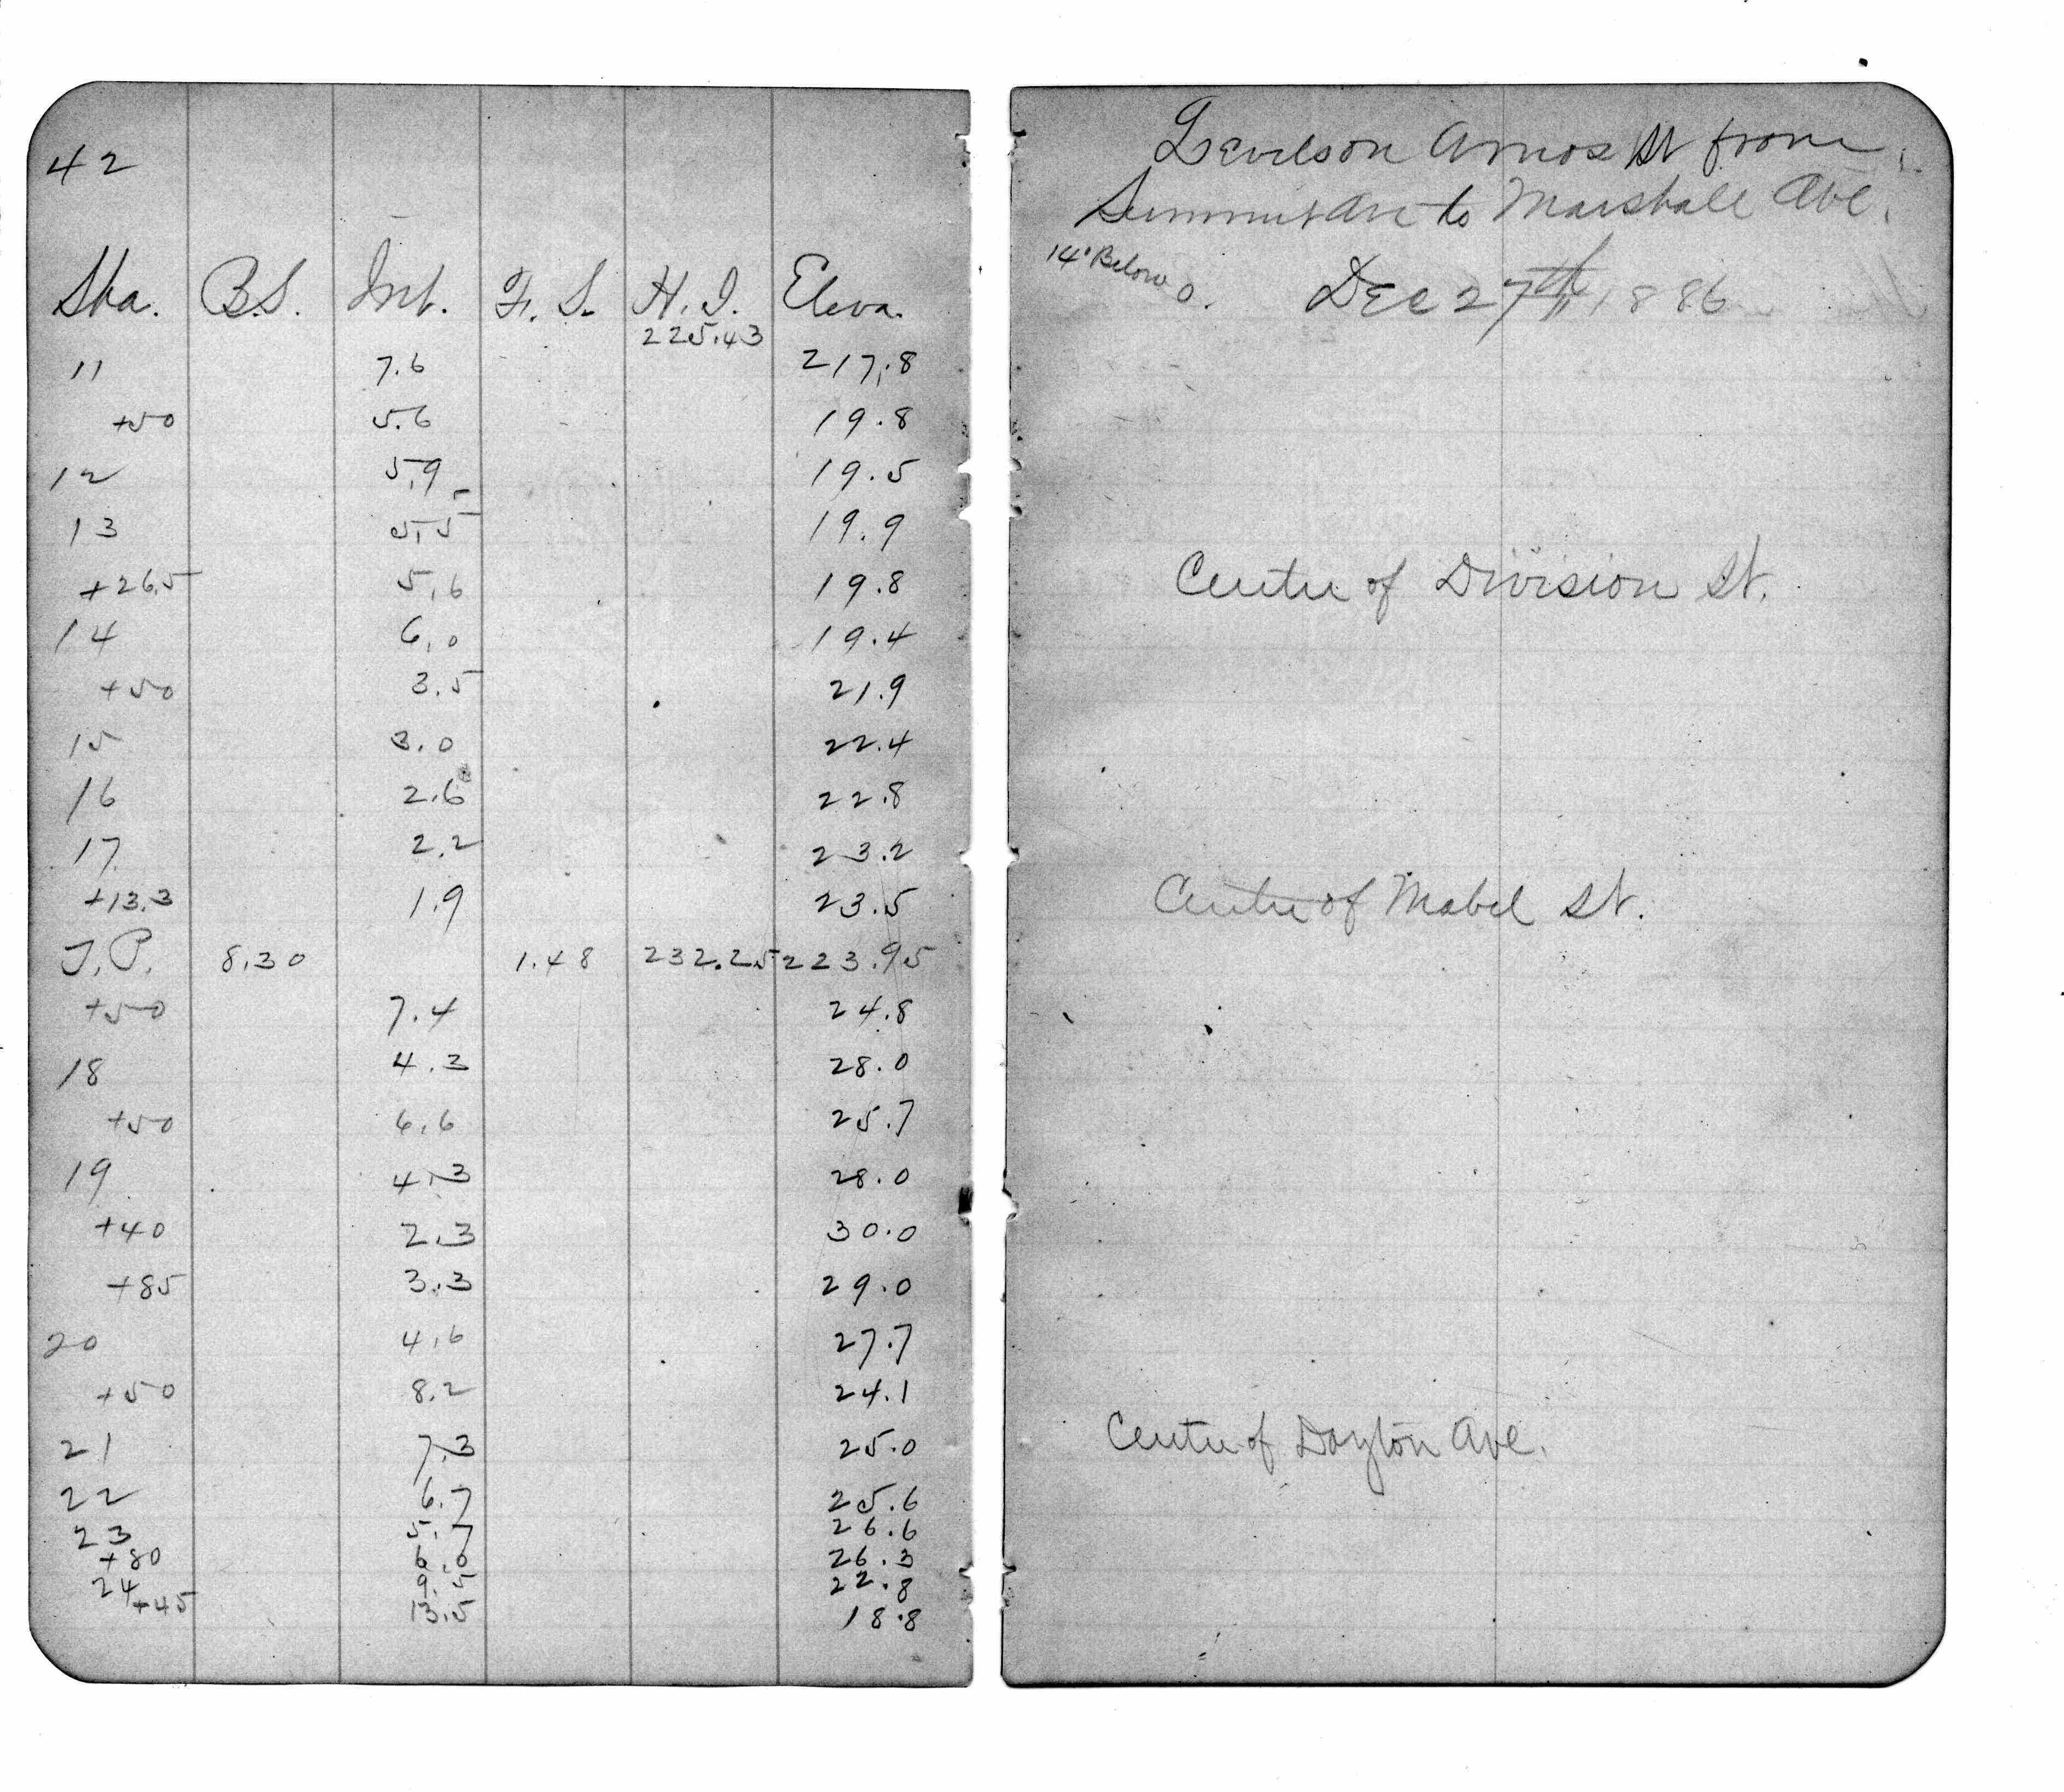 42
Sta. B.S. Int. F.S. H.I. Eleva.
225.43
11 7.6 217.8
+50 5.6 19.8
12 5.9 19.5
13 5.5 19.9
+26.5 5.6 19.8
14 6.0 19.4
+50 3.5 21.9
15 3.0 22.4
16 2.6 22.8
17 2.2 23.2
+13.3 1.9 23.5
T.P. 8.30 1.48 232.25 223.95
+50 7.4 24.8
18 4.3 28.0
+50 6.6 25.7
19 4.3 28.0
+40 2.3 30.0
+85 3.3 29.0
20 4.6 27.7
+50 8.2 24.1
21 7.3 25.0
22 6.7 25.6
23 5.7 26.6
+80 6.0 26.3
24 9.5 22.8
+45 13.5 18.8
Levels on Amos St from
Summit Ave to Marshall Ave.
14° Below 0.
Dec 27th 1886
Centre of Division St.
Centre of Mabel St.
Centre of Dayton Ave.